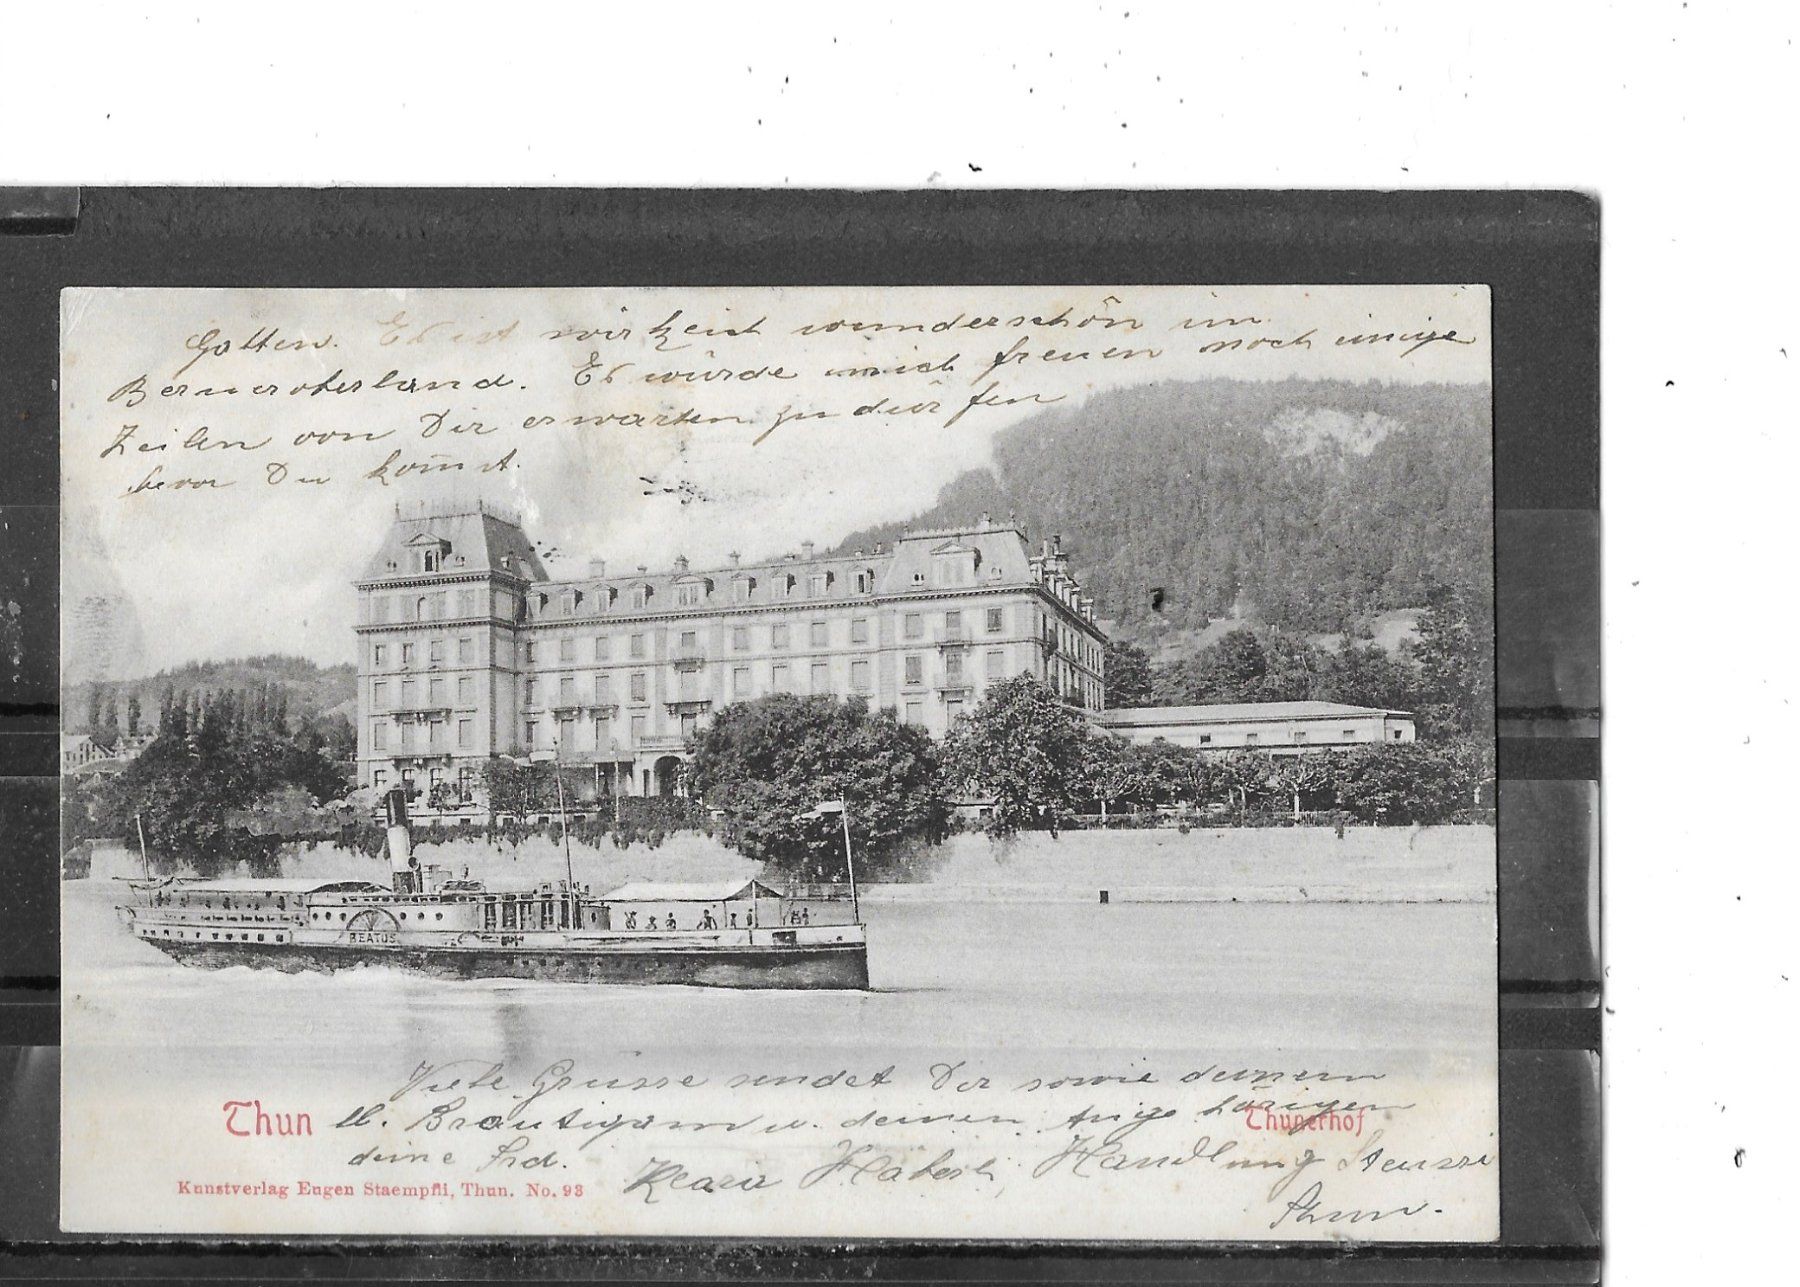 Gatten. Es ist wirklich wunderschön im
Berneroberland. Es würde mich freuen noch einige
Zeilen von Dir erwarten zu dürfen
bevor Du kom̅st.
BEATUS
Viele Grüsse sendet Dir sowie deinem
lb. Bräutigam u. deinen Angehörigen
deine Frd. Klara Häberli, Handlung Steussi
Thun.
Thun
Thunerhof
Kunstverlag Eugen Staempfli, Thun. No. 93